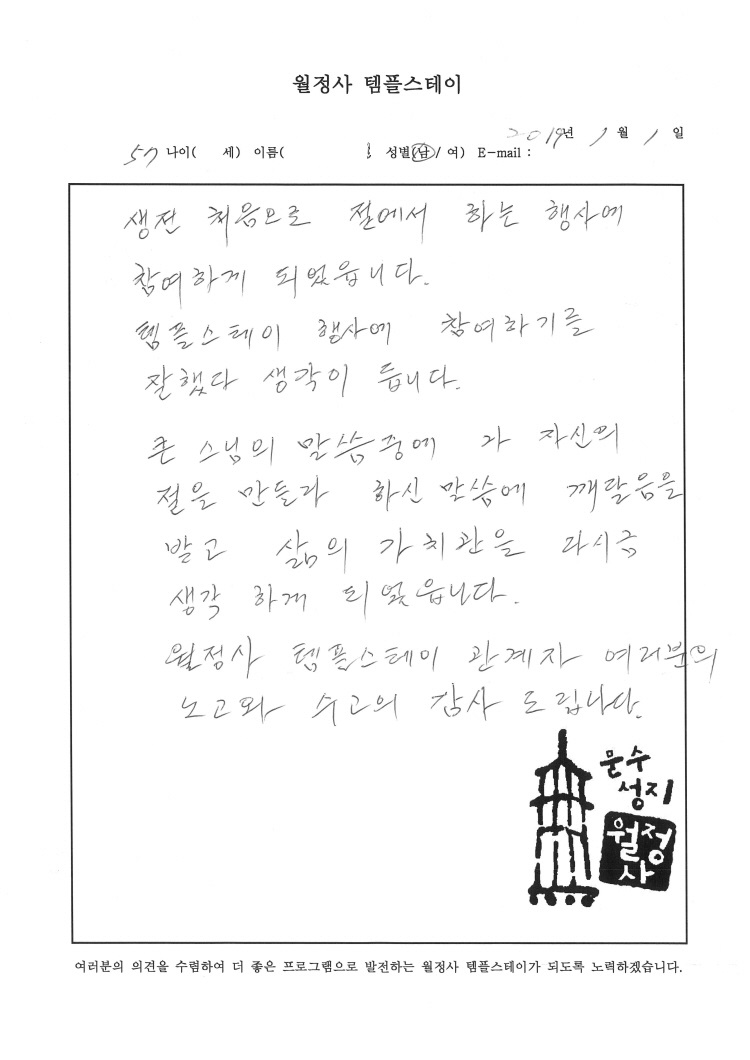 월정사 템플스테이
2019년 1월 1일
57 나이( 세) 이름( 성별(남/여) E-mail :
생전 처음으로 절에서 하는 행사에
참여하게 되었읍니다.
템플스테이 행사에 참여하기를
잘했다 생각이 듭니다.
큰 스님의 말씀중에 각 자신의
절을 만들라 하신 말씀에 깨달음을
받고 삶의 가치관을 다시금
생각 하게 되었읍니다.
월정사 템플스테이 관계자 여러분의
노고와 수고의 감사 드립니다.
문수
성지
월정
사
여러분의 의견을 수렴하여 더 좋은 프로그램으로 발전하는 월정사 템플스테이가 되도록 노력하겠습니다.